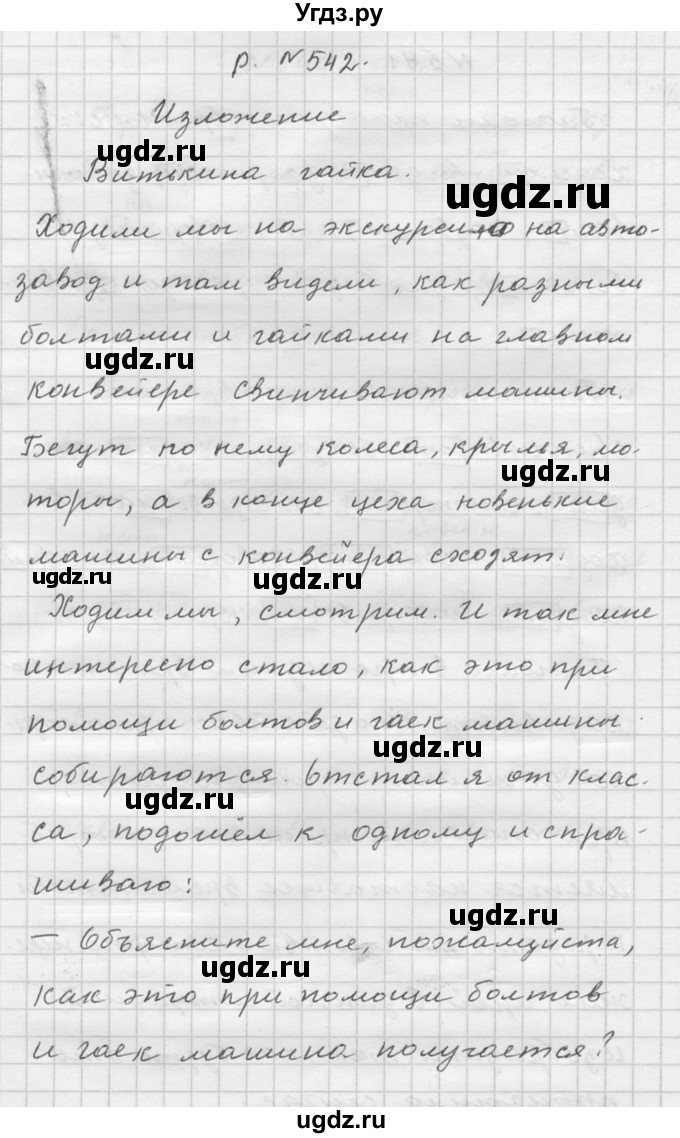 Угдз.ру
р. №542.
Изложение
Витькина гайка.
Ходили мы на экскурсию на авто-
завод и там видели, как разными
болтами и гайками на главном
конвейере свинчивают машины.
Бегут по нему колеса, крылья, мо-
торы, а в конце цеха новенькие
машины с конвейера сходят.
Ходим мы, смотрим. И так мне
интересно стало, как это при
помощи болтов и гаек машины
собираются. Отстал я от клас-
са, подошёл к одному и спра-
шиваю:
– Объясните мне, пожалуйста,
как это при помощи болтов
и гаек машина получается?
ugdz.ru
ugdz.ru
ugdz.ru
ugdz.ru
ugdz.ru
ugdz.ru
ugdz.ru
ugdz.ru
ugdz.ru
ugdz.ru
ugdz.ru